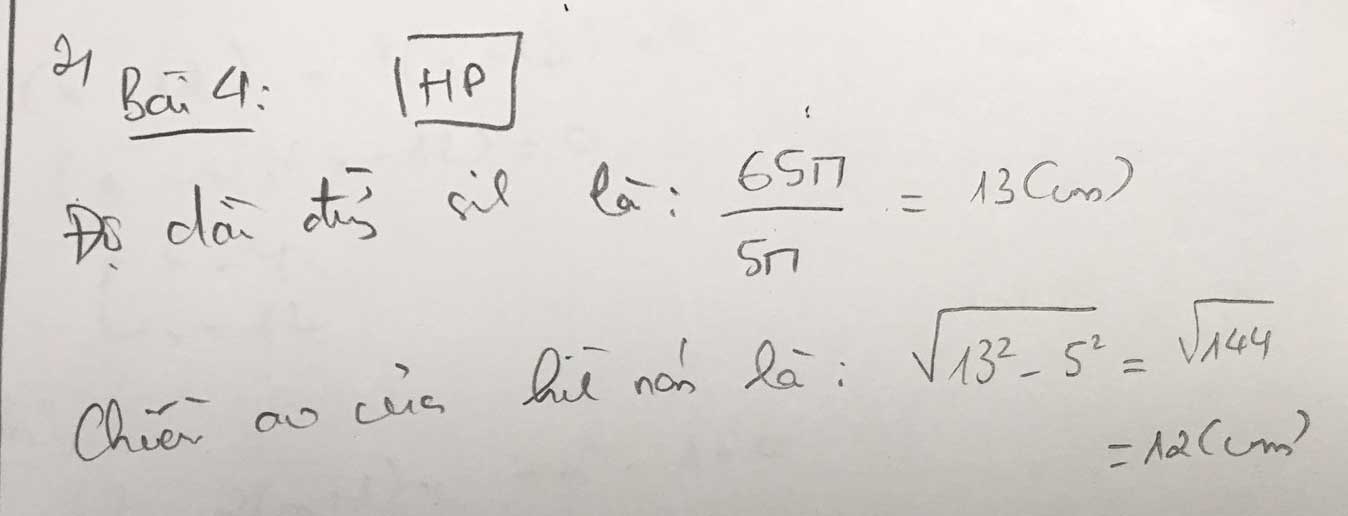 2) Bài 4: HP
Độ dài đường sinh là: 65π / 5π = 13 (cm)
Chiều cao của hình nón là: √(13² - 5²) = √144
= 12 (cm)